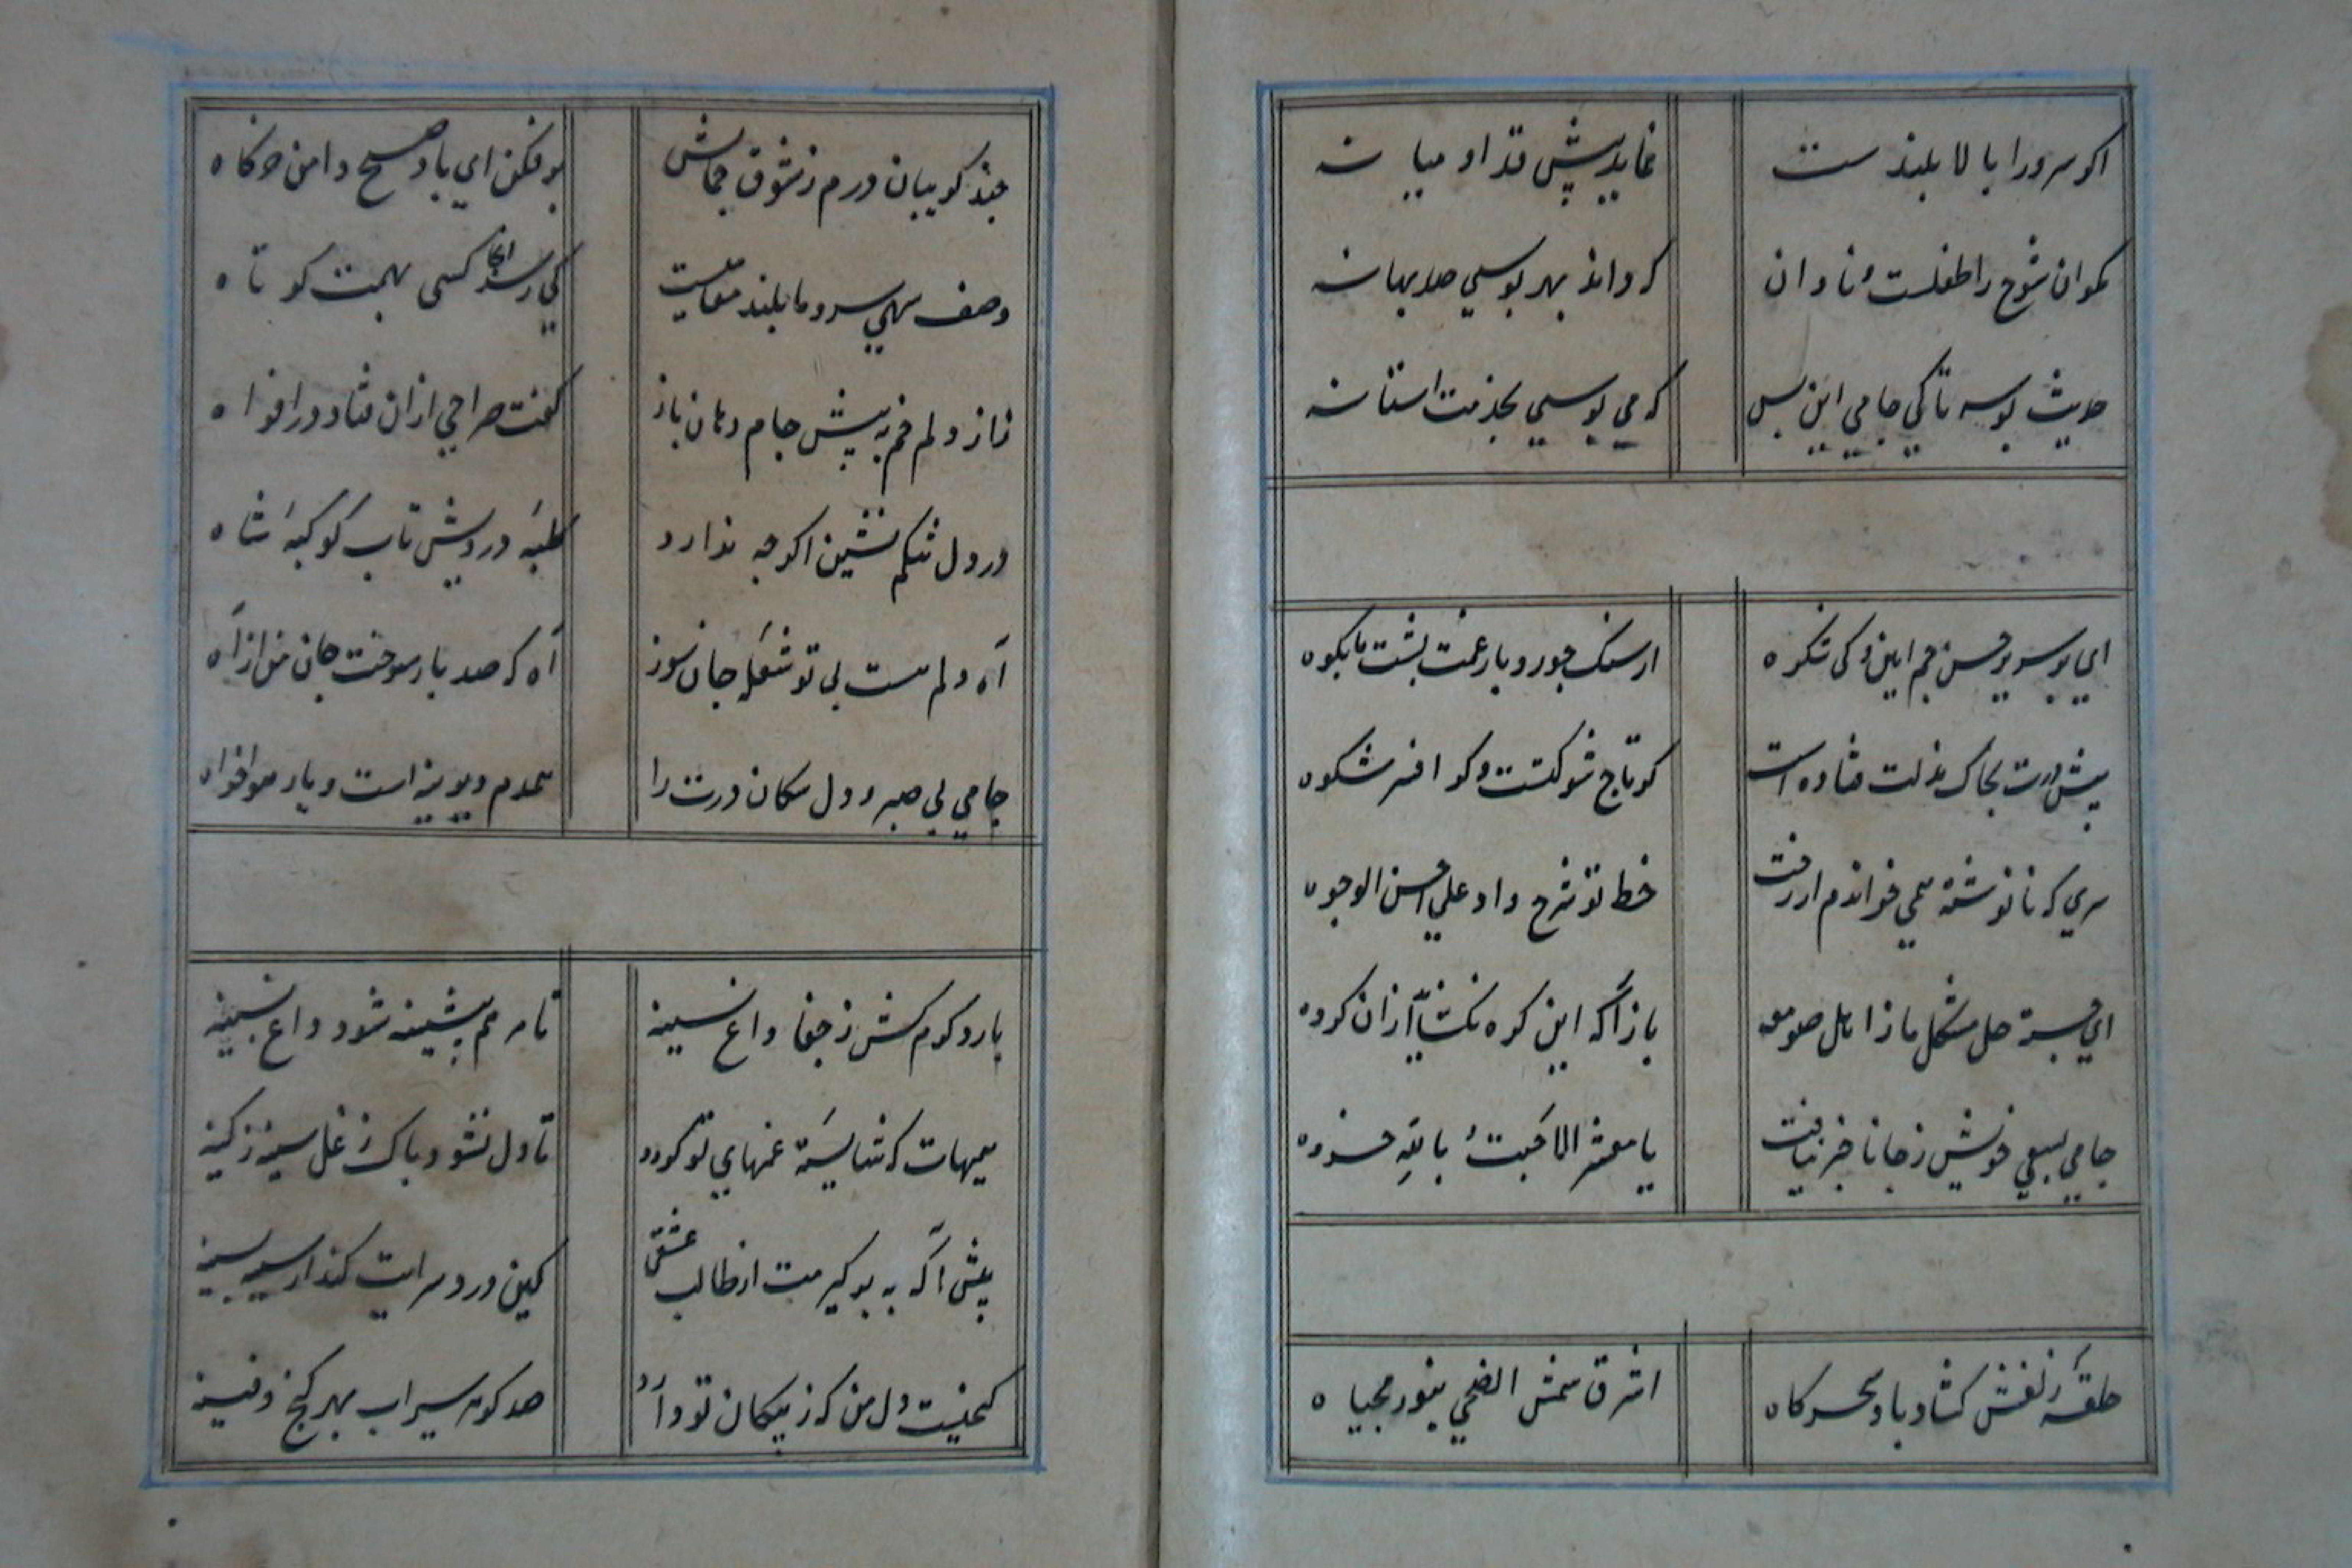 اکر سرو را بالا بلندست
نماید پیش قد او میانه
مکو ان شوخ را طفلست و نادان
که داند بهر بوسی صد بهانه
حدیث بوسه تا کی جامی این بس
که می بوسی بخدمت استانه
ای بر سریر حسن جم این و کی شکوه
از سنک جور و بار غمت پشت ما بکوه
پیش درت بخاک مذلت فتاده است
کو تاج شوکتست وکر افسر شکوه
سری که نانوشته همی خواندم از رخت
خط تو شرح داد علی احسن الوجوه
ای جسته حل مشکل ما ز اهل صومعه
بازآ که این کره نکشاید ازان کروه
جامی بسعی خویش ز جانا خبر نیافت
یا معشر الاحبت بالله خبروه
حلقهٔ زلفش کشاد باد سحرکاه
اشرق شمس الضحی بنور محیاه
چند کریبان درم ز شوق جمالش
برفکن ای باد صبح دامن خرکاه
وصف سهی سرو ما بلند مقامیست
کی رسد انجا کسی بهمت کوتاه
راز دلم خم به پیش جام دهان باز
کفت صراحی ازان فتاد در افواه
در دل تنکم نشین اکرچه ندارد
کلبهٔ درویش تاب کوکبهٔ شاه
آه دلم هست بی تو شعلهٔ جان سوز
آه که صد بار سوخت جان من از آه
جامی بی صبر و دل سکان درت را
همدم دیرینه است و یار هواخواه
بار دکرم کش ز جفا داغ بسینه
تا مرهم پیشینه شود داغ پسینه
هیهات که شایستهٔ غمهای تو کردد
تا دل نشود پاک ز غل سینه ز کینه
پیش آ که به بر کیرمت از طالب عشقی
کین درد سرایت کند از سینه بسینه
کنجیست دل من که ز پیکان تو دارد
صد کوهر سیراب بهر کنج دفینه